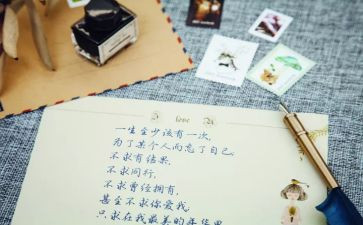 love
一生至少该有一次，
为了某个人而忘了自己，
不求有结果，
不求同行，
不求曾经拥有，
甚至不求你爱我，
只求在我最美的年华里